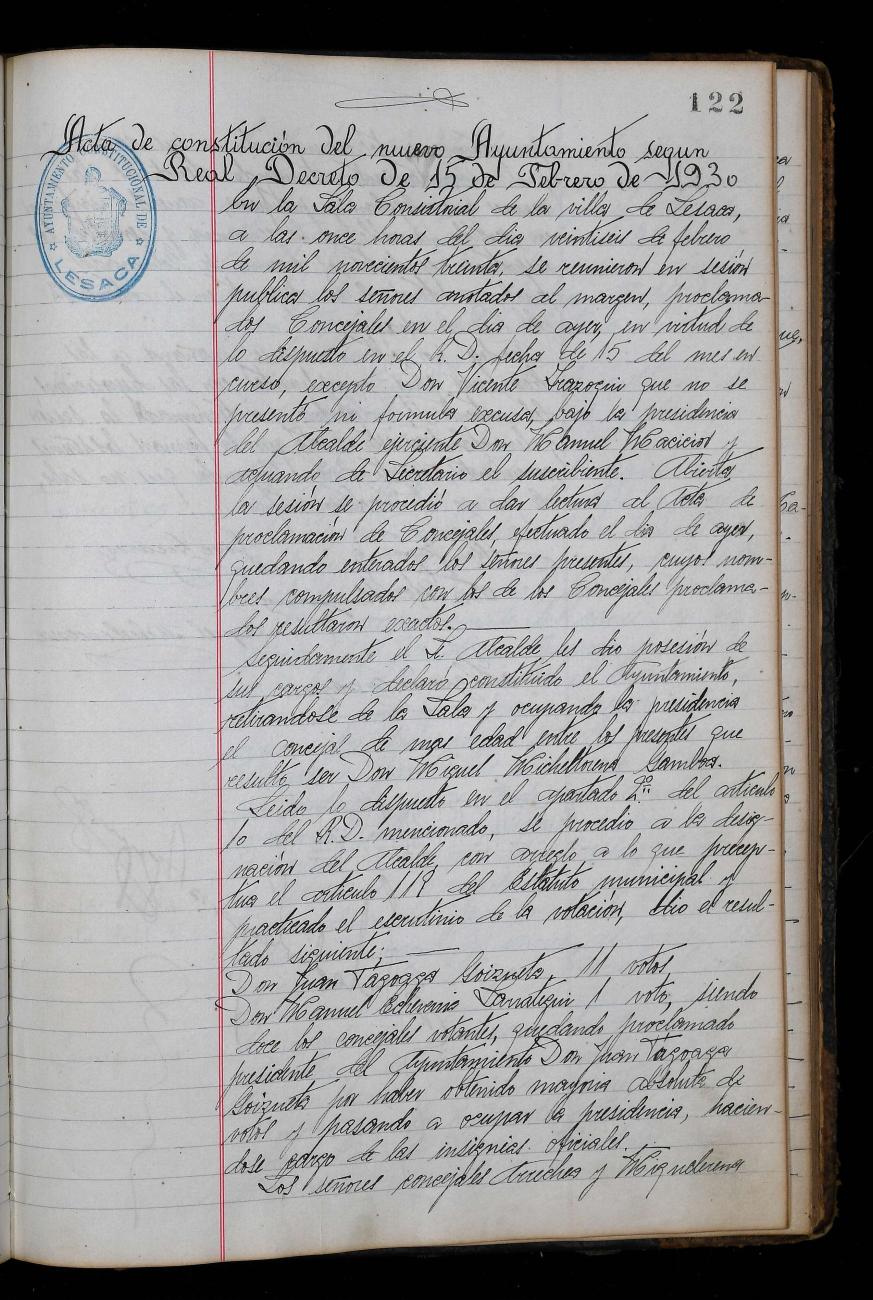 122
Acta de constitución del nuevo Ayuntamiento segun
Real Decreto de 15 de Febrero de 1930
AYUNTAMIENTO CONSTITUCIONAL DE
LESACA
En la Sala Consistorial de la villa de Lesaca,
a las once horas del dia veintiseis de febrero
de mil novecientos treinta, se reunieron en sesión
publica los señores anotados al margen, proclama-
dos Concejales en el dia de ayer, en virtud de
lo dispuesto en el R. D. fecha de 15 del mes en
curso, excepto Don Vicente Irazoqui que no se
presentó ni formula excusa, bajo la presidencia
del Alcalde ejerciente Don Manuel Macicior y
actuando de Secretario el suscribiente. Abierta
la sesión se procedió a dar lectura al Acta de
proclamación de Concejales, efectuado el dia de ayer,
quedando enterados los señores presentes, cuyos nom-
bres compulsados con los de los Concejales proclama-
dos resultaron exactos.
Seguidamente el Sr. Alcalde les dio posesión de
sus cargos y declaro constituido el Ayuntamiento,
retirandose de la Sala y ocupando la presidencia
el concejal de mas edad entre los presentes que
resulto ser Don Miguel Micheltorena Gamboa.
Leido lo dispuesto en el apartado 2º del articulo
1o del R.D. mencionado, se procedio a la desig-
nación del Alcalde, con arreglo a lo que precep-
tua el articulo 119 del Estatuto municipal y
practicado el escrutinio de la votación, dio el resul-
tado siguiente:
Don Juan Tagoaga Goizueta, 11 votos
Don Manuel Echeverria Larrategui 1 voto, siendo
doce los concejales votantes, quedando proclamado
presidente del Ayuntamiento Don Juan Tagoaga
Goizueta por haber obtenido mayoria absoluta de
votos y pasando a ocupar la presidencia, hacien-
dose cargo de las insignias oficiales.
Los señores concejales Arrechea y Miquelerena